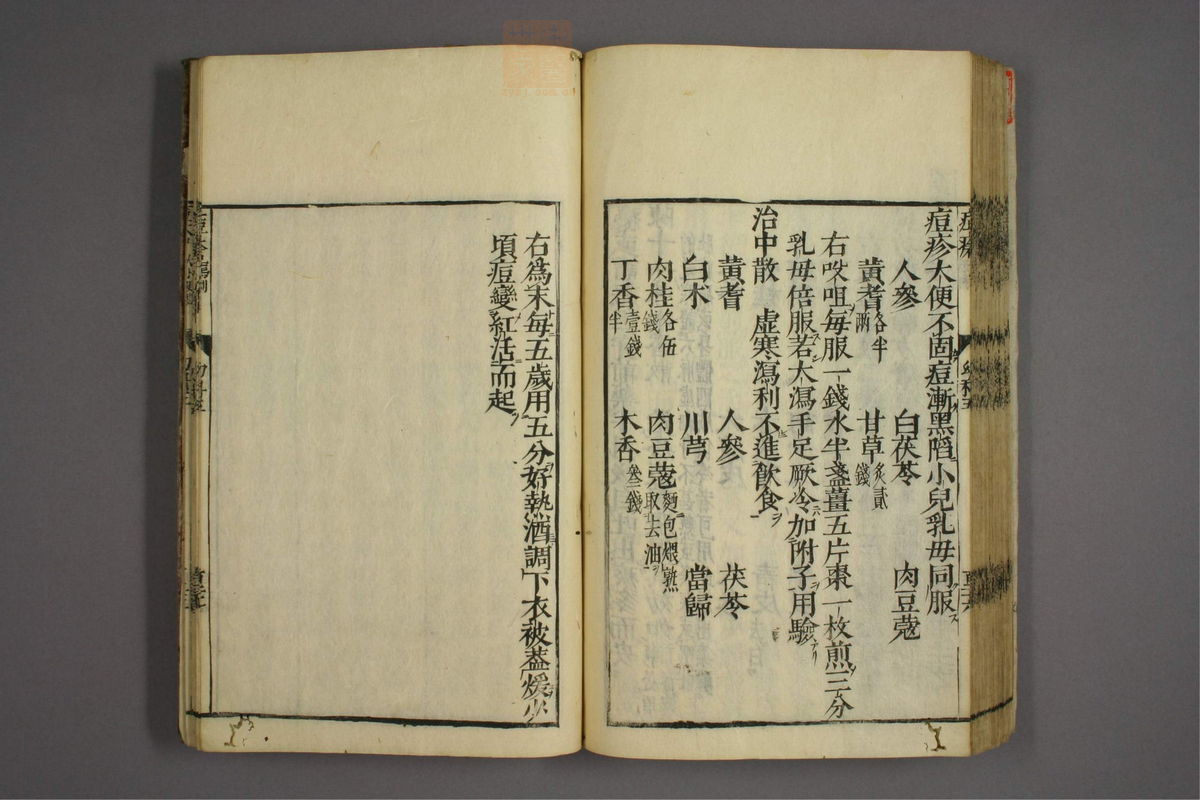 痘疹大便不固痘漸黑陷小兒乳母同服
人參　白茯苓　肉豆蔲
黃耆各半兩　甘草炙貳錢
右㕮咀每服一錢水半盞薑五片棗一枚煎三分
乳母倍服若大瀉手足厥冷加附子用驗
治中散　虛寒瀉利不進飲食
黃耆　人參　茯苓
白朮　川芎　當歸
肉桂各伍錢　肉豆蔲麵包煨熟取去油
丁香壹錢半　木香叄錢
右爲末每五歲用五分好熱酒調下衣被蓋煖少
頃痘變紅活而起